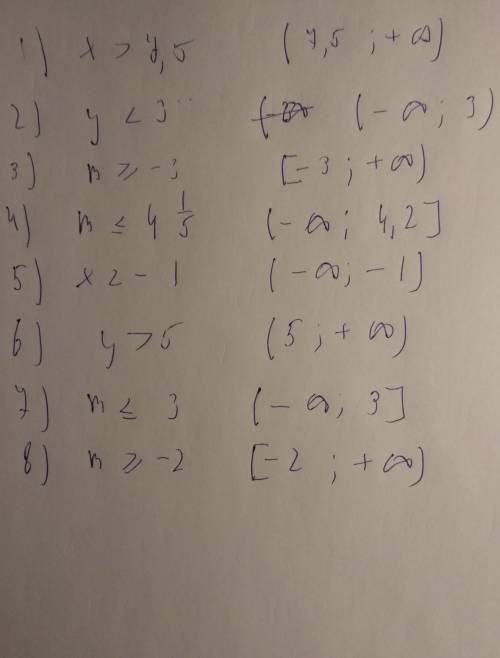 1) x > 7,5 (7,5 ; +∞)
2) y < 3 (-∞; 3)
3) n ≥ -3 [-3 ; +∞)
4) m ≤ 4 1/5 (-∞; 4,2]
5) x < -1 (-∞; -1)
6) y > 5 (5 ; +∞)
7) m ≤ 3 (-∞; 3]
8) n ≥ -2 [-2 ; +∞)